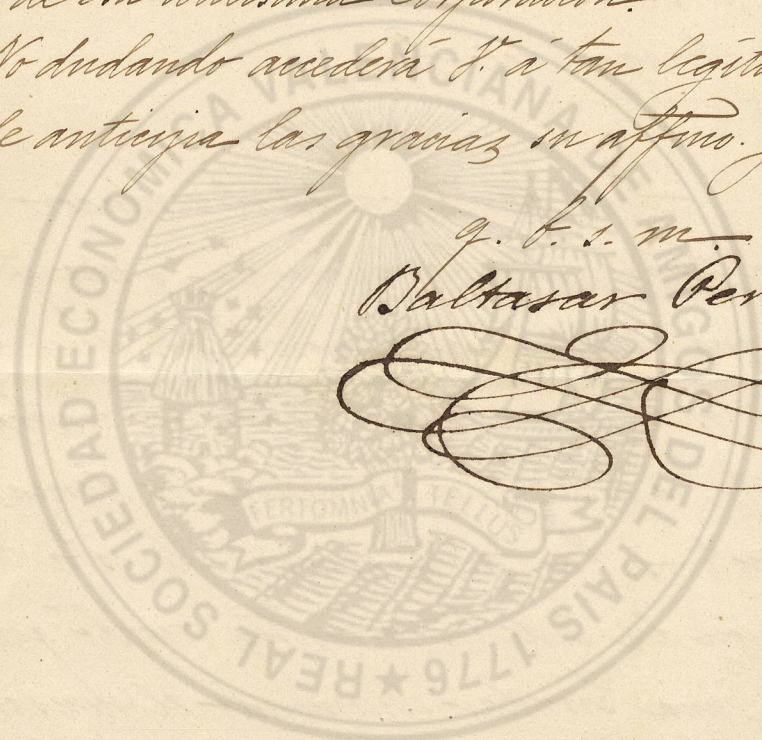 de esa corporación.
No dudando accederá V. á tan legít
le anticipa las gracias su affmo.
q. b. s. m.
Baltasar Per
REAL SOCIEDAD ECONOMICA VALENCIANA DE AMIGOS DEL PAIS 1776 ★
FERT OMNIA TELLUS